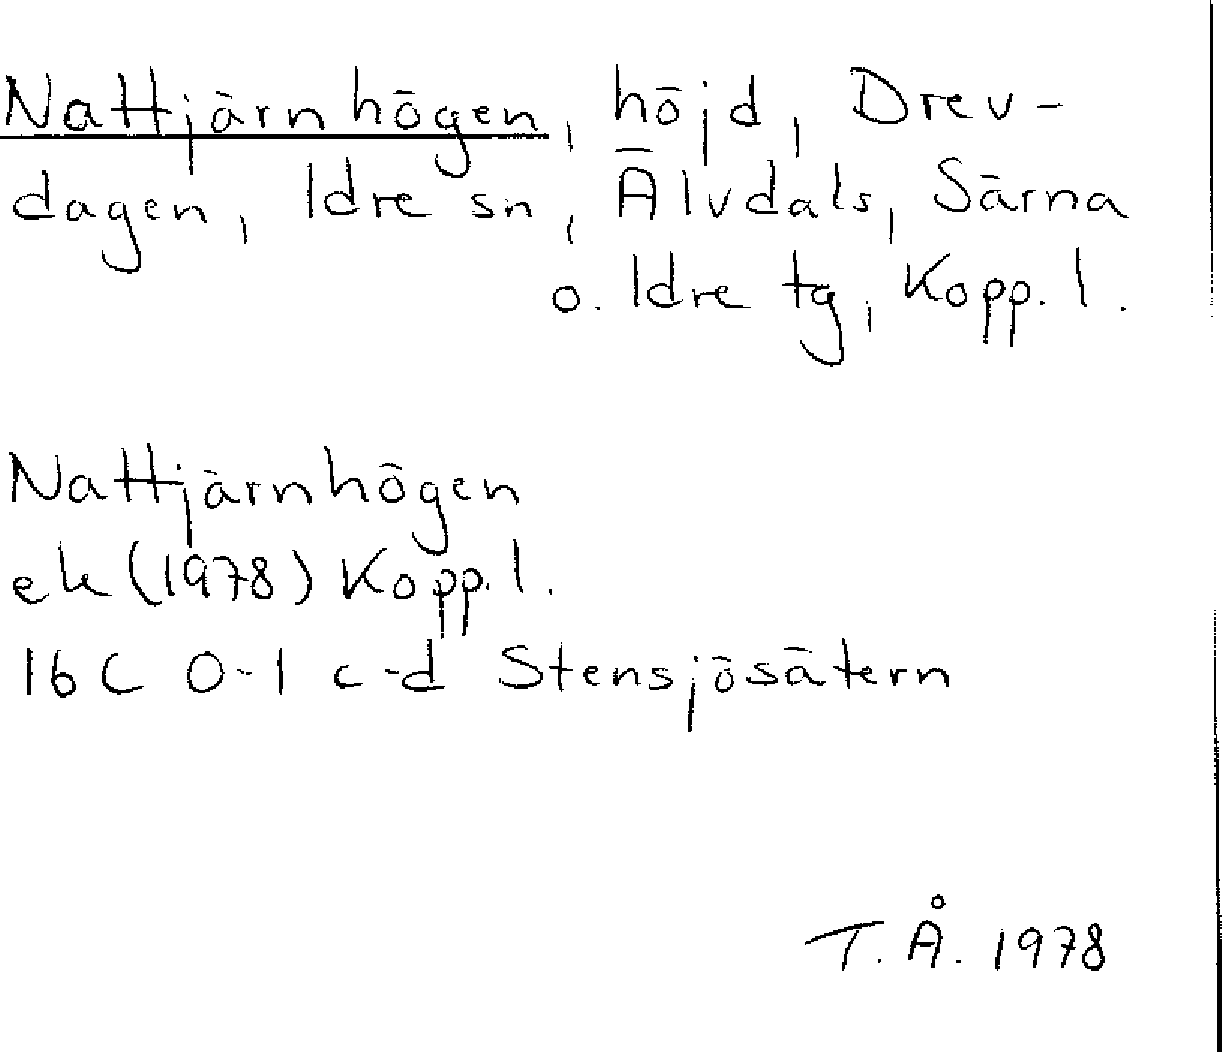 Nattjärnhögen, höjd, Drev-
dagen, Idre sn, Älvdals, Särna
o. Idre tg, Kopp. l.
Nattjärnhögen
ek (1978) Kopp. l.
16C 0-1 c-d Stensjösätern
T. Å. 1978